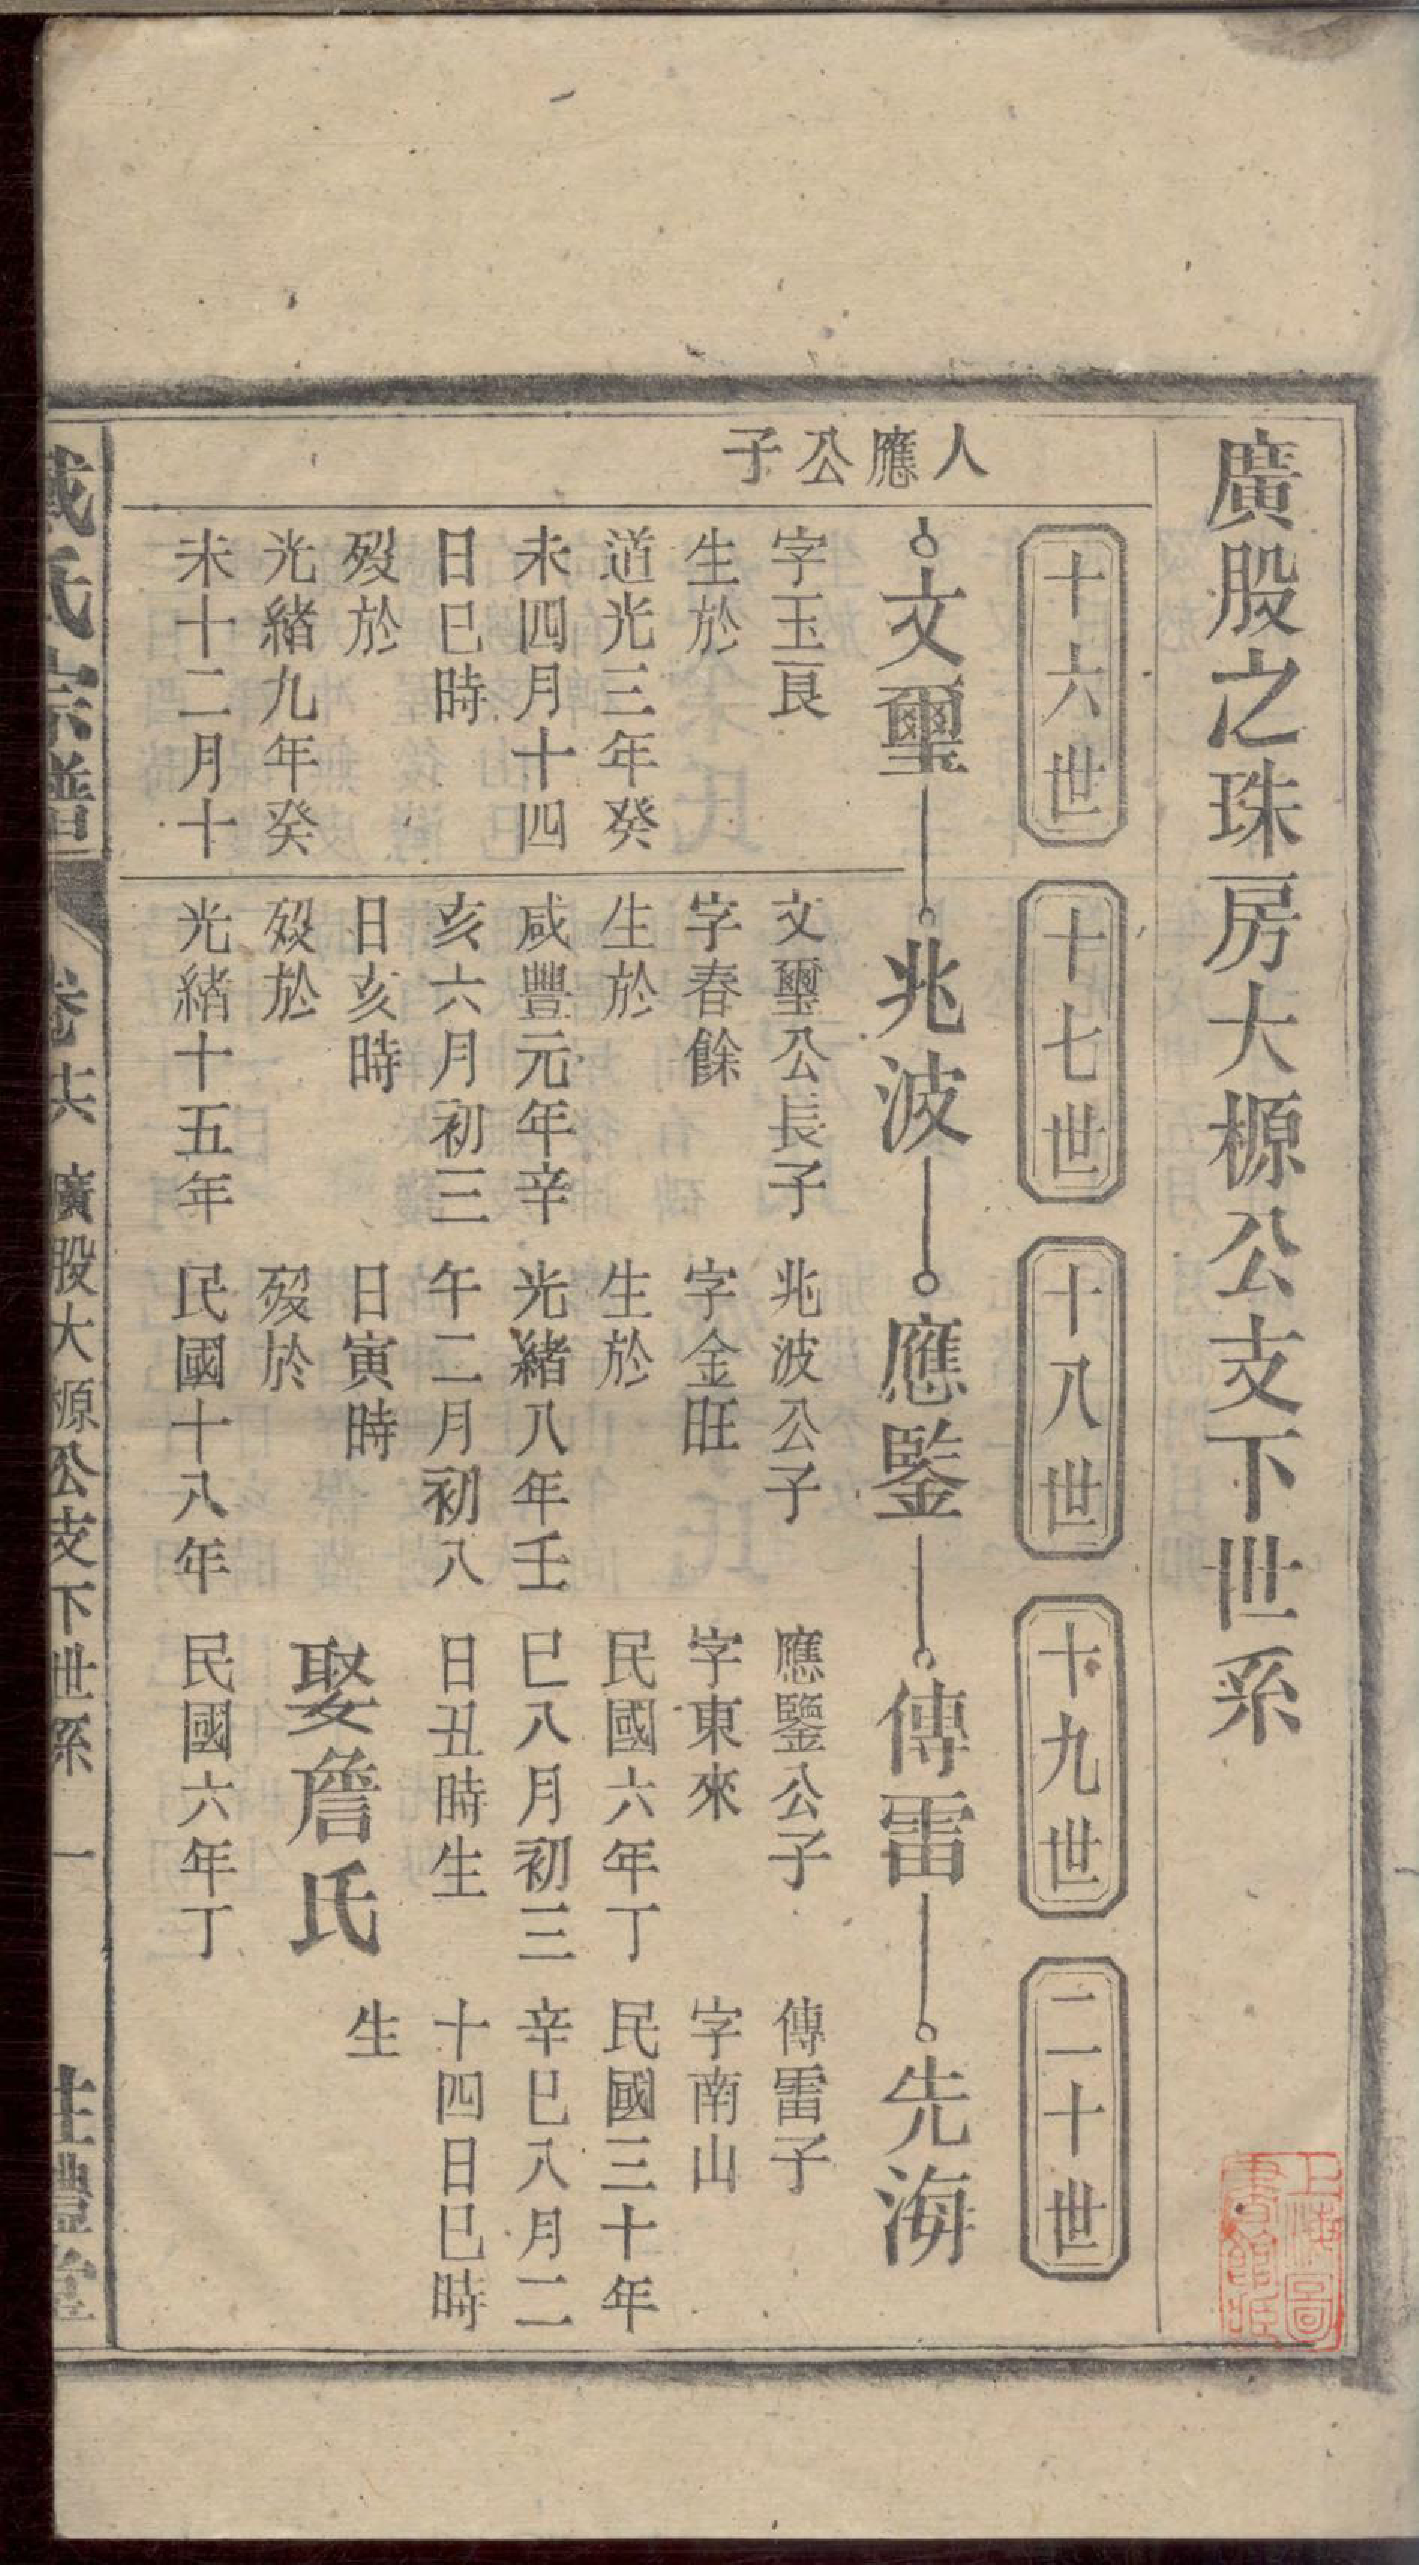 廣股之珠房大榞公支下世系
十六世
十七世
十八世
十九世
二十世
人應公子
文璽
兆波
應鑒
傳雷
先海
字玉良
生於
道光三年癸
未四月十四
日巳時
歿於
光緒九年癸
未十二月十
文璽公長子
字春餘
生於
咸豐元年辛
亥六月初三
日亥時
歿於
光緒十五年
兆波公子
字金旺
生於
光緒八年壬
午二月初八
日寅時
歿於
民國十八年
應鑒公子
字東來
民國六年丁
巳八月初三
日丑時生
娶詹氏
民國六年丁
傳雷子
字南山
民國三十年
辛巳八月二
十四日巳時
生
氏宗譜
卷
廣股大榞公支下世系
一
禮堂
上海圖
書館